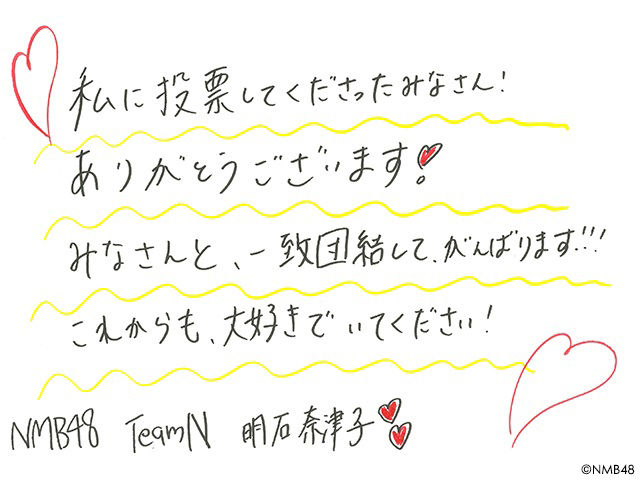 私に投票してくださったみなさん!
ありがとうございます!
みなさんと、一致団結して、がんばります!!!
これからも、大好きでいてください!
NMB48 TeamN 明石奈津子
©NMB48